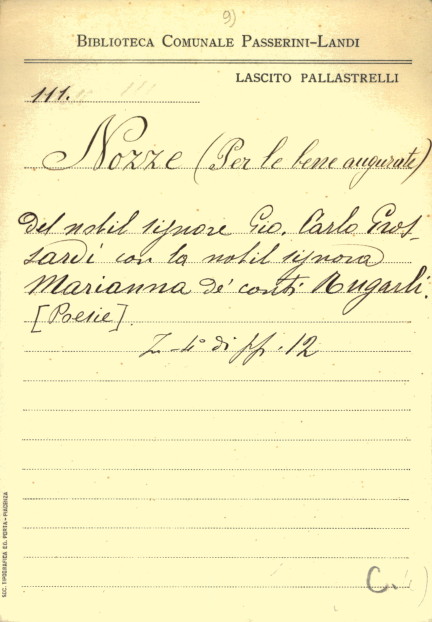 9)
BIBLIOTECA COMUNALE PASSERINI-LANDI
LASCITO PALLASTRELLI
111.
Nozze (Per le bene augurate)
del nobil signore Gio. Carlo Gros-
sardi con la nobil signora
Marianna de' conti Rugarli.
[Poesie].
4° di pp. 12
C.
SOC. TIPOGRAFICA ED. PORTA-PIACENZA